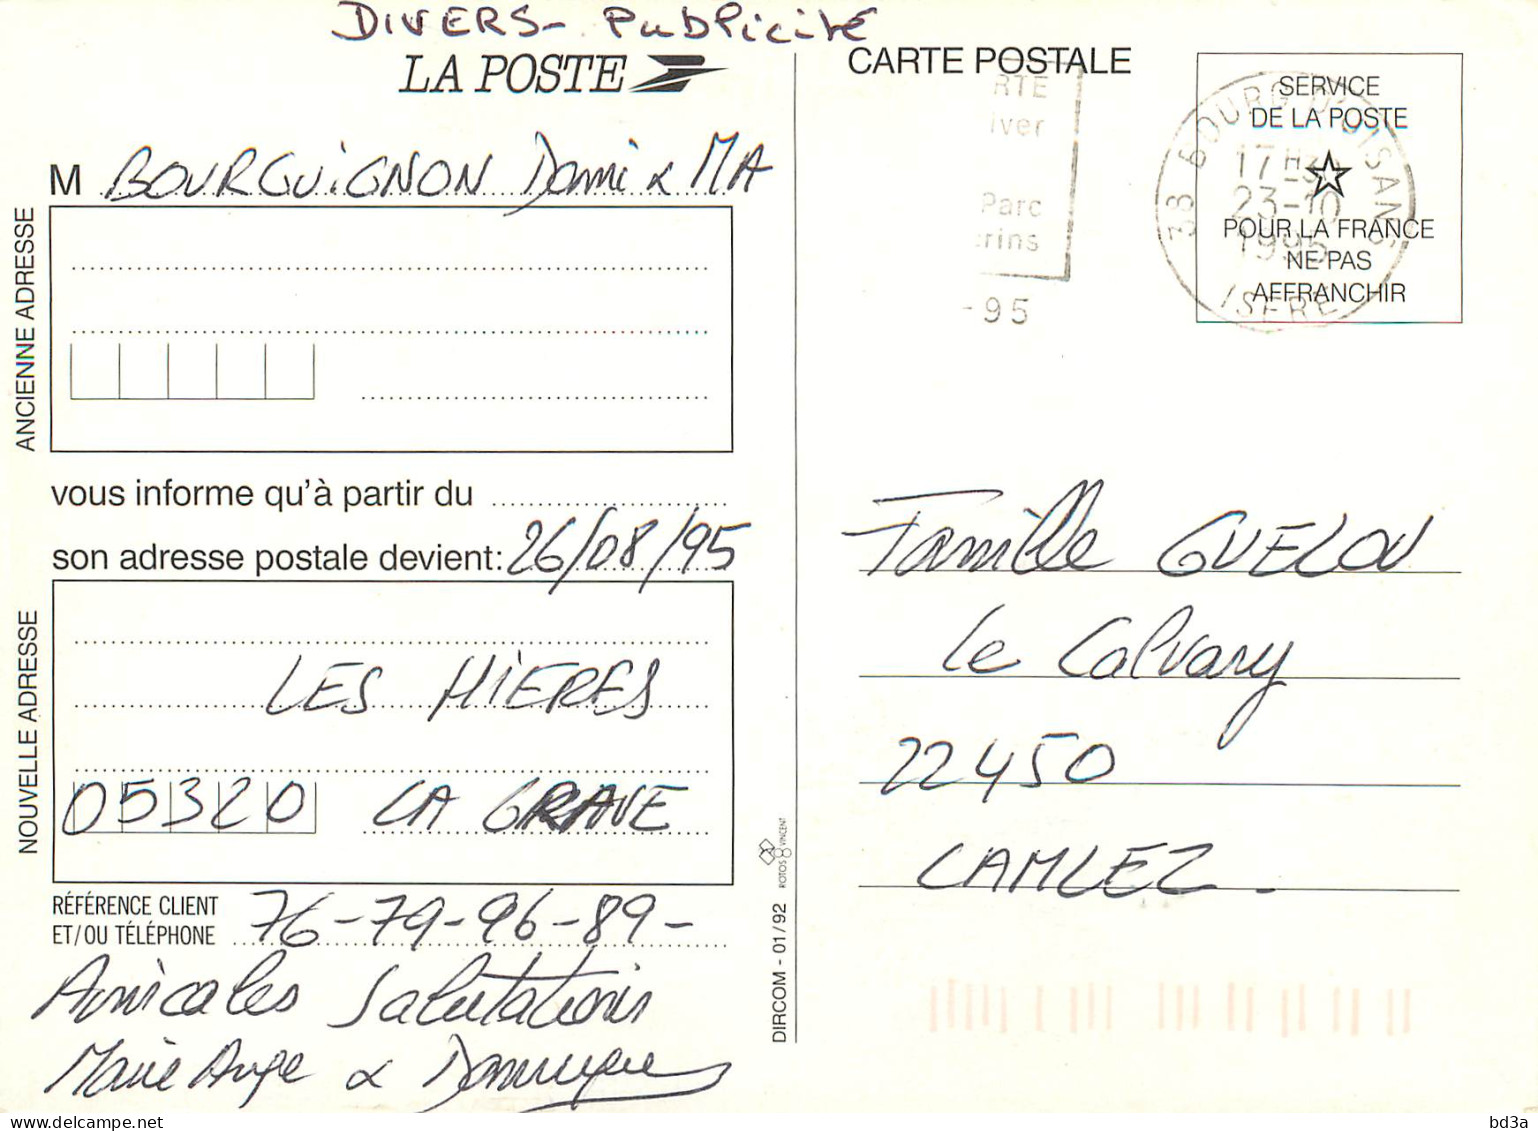 DIVERS - Publicité
LA POSTE
M BOURGUIGNON Domi & MA
ANCIENNE ADRESSE
vous informe qu'à partir du
son adresse postale devient: 26/08/95
NOUVELLE ADRESSE
LES HIÈRES
05320 LA GRAVE
RÉFÉRENCE CLIENT
ET/OU TÉLÉPHONE 76-79-96-89-
Amicales Salutations
Marie Ange & Dominique
DIRCOM - 01/92
ROTOS VINCENT
CARTE POSTALE
RTE
iver
Parc
rins
-95
SERVICE
DE LA POSTE
POUR LA FRANCE
NE PAS
AFFRANCHIR
38 BOURG D'OISANS
17H30
23-10
1995
ISERE
Famille GUELOU
Le Calvary
22450
CAMLEZ -
bd3a